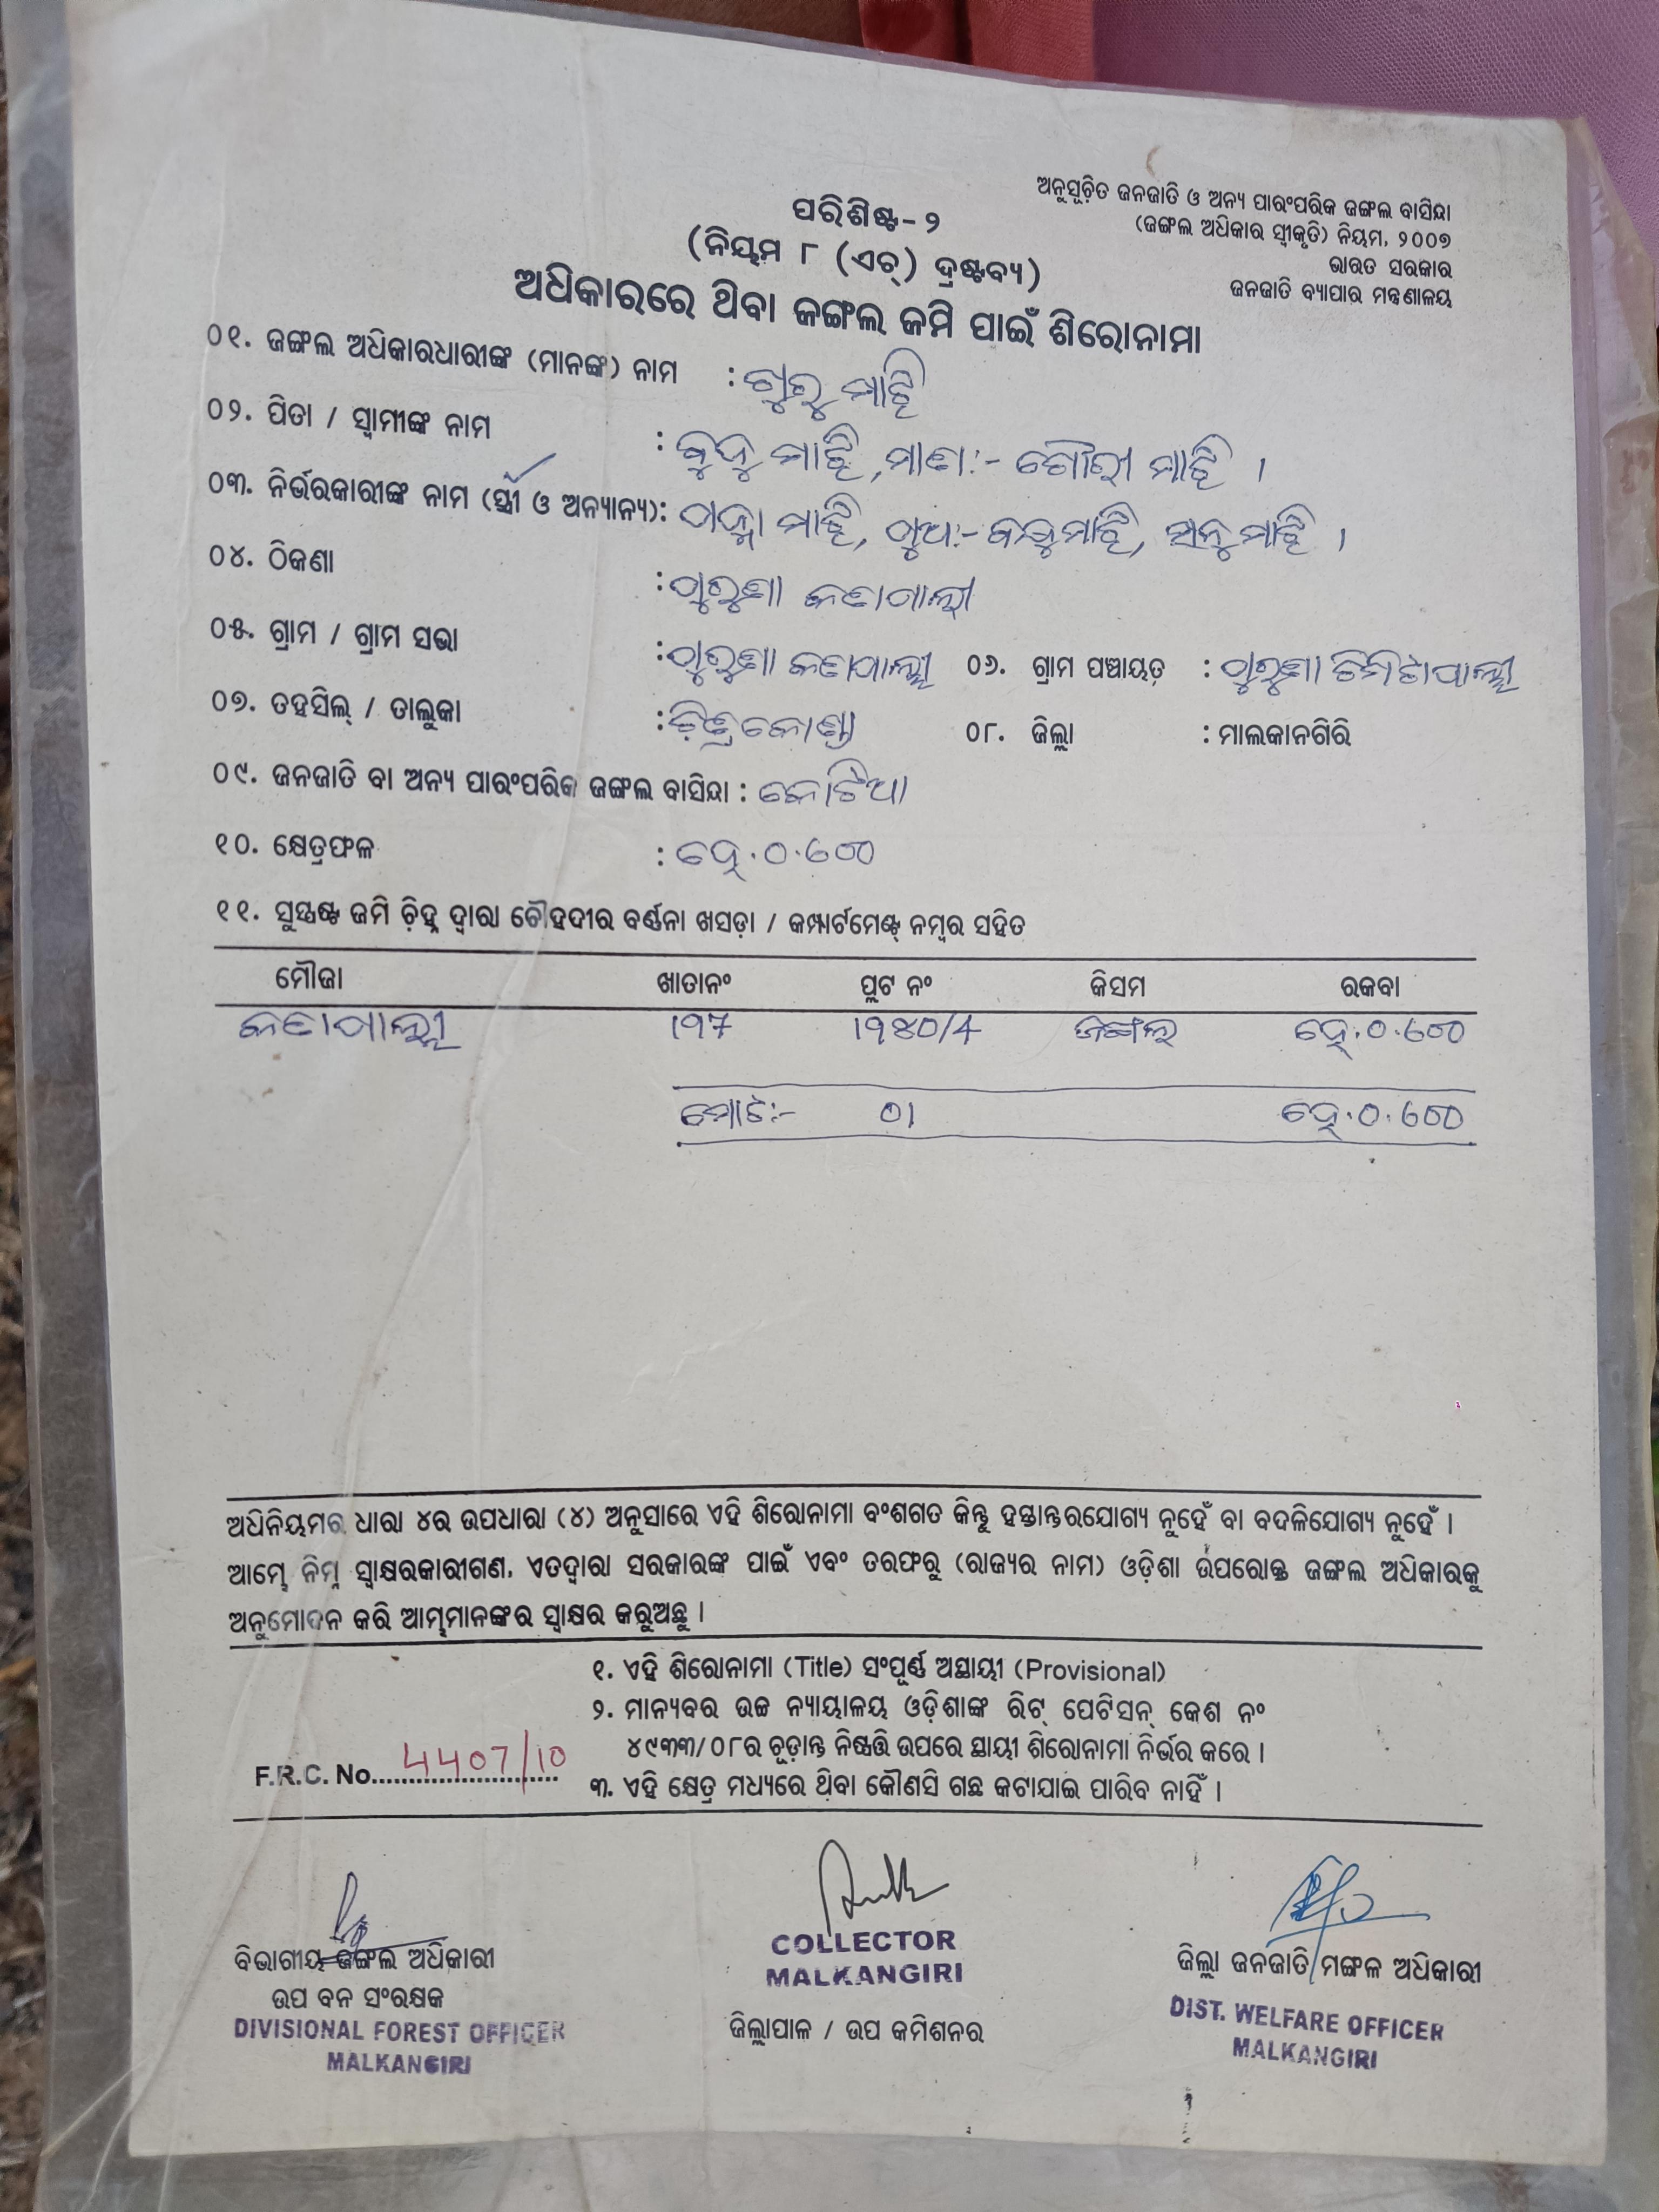 ଅନୁସୂଚିତ ଜନଜାତି ଓ ଅନ୍ୟ ପାରଂପରିକ ଜଙ୍ଗଲ ବାସିନ୍ଦା
(ଜଙ୍ଗଲ ଅଧିକାର ସ୍ୱୀକୃତି) ନିୟମ, ୨୦୦୭
ଭାରତ ସରକାର
ଜନଜାତି ବ୍ୟାପାର ମନ୍ତ୍ରଣାଳୟ
ପରିଶିଷ୍ଟ-୨
(ନିୟମ ୮ (ଏଚ୍) ଦ୍ରଷ୍ଟବ୍ୟ)
ଅଧିକାରରେ ଥିବା ଜଙ୍ଗଲ ଜମି ପାଇଁ ଶିରୋନାମା
୦୧. ଜଙ୍ଗଲ ଅଧିକାରଧାରୀଙ୍କ (ମାନଙ୍କ) ନାମ : ଗୁରୁ ମାଝି
୦୨. ପିତା / ସ୍ୱାମୀଙ୍କ ନାମ : ବୁଦୁ ମାଝି, ମାତା:- ଗୌରୀ ମାଝି ।
୦୩. ନିର୍ଭରକାରୀଙ୍କ ନାମ (ସ୍ତ୍ରୀ ଓ ଅନ୍ୟାନ୍ୟ): ପଦ୍ମା ମାଝି, ପୁଅ:- ଜୟୁମାଝି, ସନୁମାଝି ।
୦୪. ଠିକଣା : ପୁରୁଣା କଣାପାଲ୍ଲୀ
୦୫. ଗ୍ରାମ / ଗ୍ରାମ ସଭା : ପୁରୁଣା କଣାପାଲ୍ଲୀ ୦୬. ଗ୍ରାମ ପଞ୍ଚାୟତ୍ : ପୁରୁଣା ଚିମିଟାପାଲ୍ଲୀ
୦୭. ତହସିଲ୍ / ତାଲୁକା : ଚିତ୍ରକୋଣ୍ଡା ୦୮. ଜିଲ୍ଲା : ମାଲକାନଗିରି
୦୯. ଜନଜାତି ବା ଅନ୍ୟ ପାରଂପରିକ ଜଙ୍ଗଲ ବାସିନ୍ଦା : କୋଟିଆ
୧୦. କ୍ଷେତ୍ରଫଳ : ହେ.୦.୬୦୦
୧୧. ସୁସ୍ପଷ୍ଟ ଜମି ଚିହ୍ନ ଦ୍ୱାରା ଚୌହଦୀର ବର୍ଣ୍ଣନା ଖସଡ଼ା / କମ୍ପାର୍ଟମେଣ୍ଟ୍ ନମ୍ବର ସହିତ
ମୌଜା ଖାତାନଂ ପ୍ଲଟ ନଂ କିସମ ରକବା
କଣାପାଲ୍ଲୀ ୧୩୭ ଜଙ୍ଗଲ ହେ.୦.୬୦୦
ମୋଟ:- ୦୧ ହେ.୦.୬୦୦
ଅଧିନିୟମର ଧାରା ୪ର ଉପଧାରା (୪) ଅନୁସାରେ ଏହି ଶିରୋନାମା ବଂଶଗତ କିନ୍ତୁ ହସ୍ତାନ୍ତରଯୋଗ୍ୟ ନୁହେଁ ବା ବଦଳିଯୋଗ୍ୟ ନୁହେଁ ।
ଆମ୍ଭେ ନିମ୍ନ ସ୍ୱାକ୍ଷରକାରୀଗଣ, ଏତଦ୍ୱାରା ସରକାରଙ୍କ ପାଇଁ ଏବଂ ତରଫରୁ (ରାଜ୍ୟର ନାମ) ଓଡ଼ିଶା ଉପରୋକ୍ତ ଜଙ୍ଗଲ ଅଧିକାରକୁ
ଅନୁମୋଦନ କରି ଆମ୍ଭମାନଙ୍କର ସ୍ୱାକ୍ଷର କରୁଅଛୁ ।
୧. ଏହି ଶିରୋନାମା (Title) ସଂପୂର୍ଣ୍ଣ ଅସ୍ଥାୟୀ (Provisional)
୨. ମାନ୍ୟବର ଉଚ୍ଚ ନ୍ୟାୟାଳୟ ଓଡ଼ିଶାଙ୍କ ରିଟ୍ ପେଟିସନ୍ କେଶ ନଂ
୪୯୩୩/୦୮ର ଚୂଡ଼ାନ୍ତ ନିଷ୍ପତ୍ତି ଉପରେ ସ୍ଥାୟୀ ଶିରୋନାମା ନିର୍ଭର କରେ ।
F.R.C. No. 4407/10
୩. ଏହି କ୍ଷେତ୍ର ମଧ୍ୟରେ ଥିବା କୌଣସି ଗଛ କଟାଯାଇ ପାରିବ ନାହିଁ ।
ବିଭାଗୀୟ ଜଙ୍ଗଲ ଅଧିକାରୀ
ଉପ ବନ ସଂରକ୍ଷକ
DIVISIONAL FOREST OFFICER
MALKANGIRI
COLLECTOR
MALKANGIRI
ଜିଲ୍ଲାପାଳ / ଉପ କମିଶନର
ଜିଲ୍ଲା ଜନଜାତି ମଙ୍ଗଳ ଅଧିକାରୀ
DIST. WELFARE OFFICER
MALKANGIRI